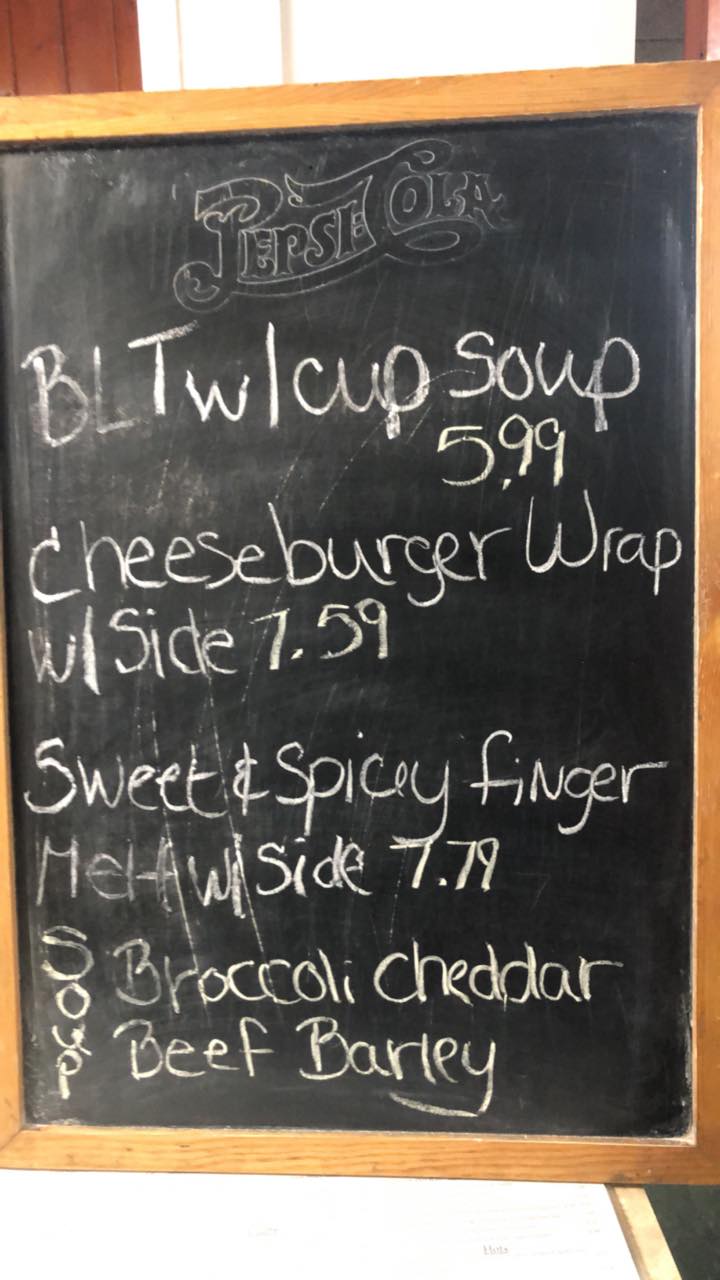 PEPSI COLA
BLT w/cup soup
5.99
cheeseburger Wrap
w/Side 7.59
Sweet & Spicey finger
Melt w/Side 7.79
SOUP
Broccoli cheddar
Beef Barley